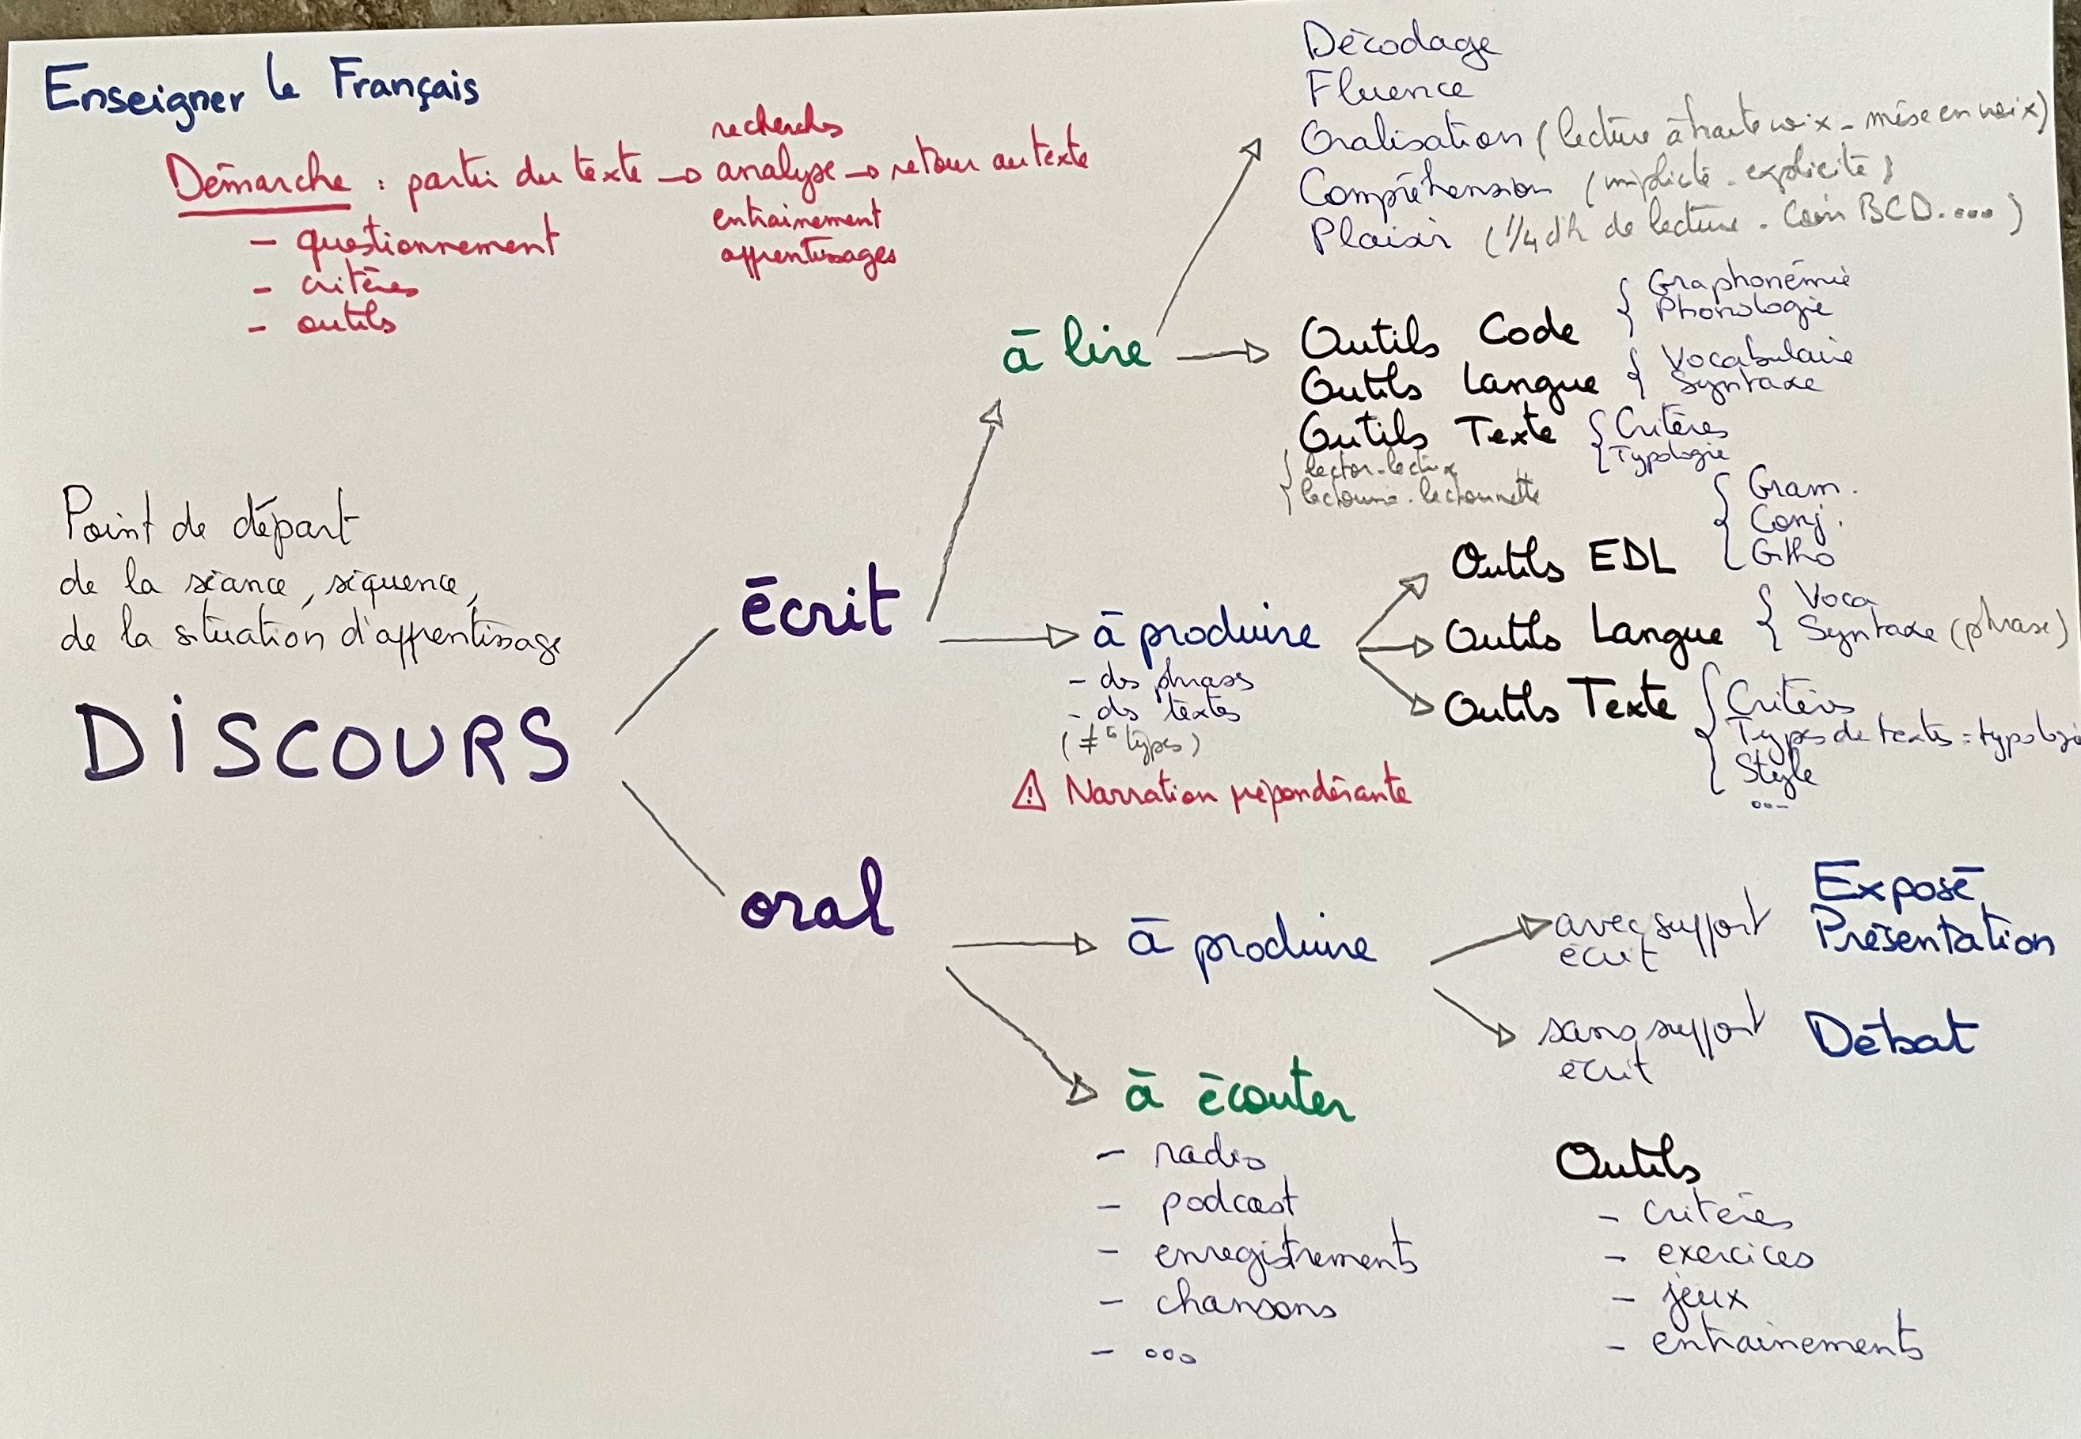 Enseigner le Français
Démarche : partir du texte → analyse → retour au texte
recherches
entrainement
apprentissages
- questionnement
- critères
- outils
Point de départ
de la séance, séquence,
de la situation d'apprentissage
DISCOURS
écrit
à lire
Décodage
Fluence
Oralisation (lecture à haute voix - mise en voix)
Compréhension (implicite - explicite)
Plaisir (1/4 d'h de lecture - Coin BCD....)
Outils Code { Graphonémie
Phonologie
Outils Langue { Vocabulaire
Syntaxe
Outils Texte { Critères
Typologie
{ lector - lectrix
lectorino - lectorinette
à produire
- des phrases
- des textes
(≠ts types)
⚠ Narration prépondérante
Outils EDL { Gram.
Conj.
Ortho
Outils Langue { Voca
Syntaxe (phrase)
Outils Texte { Critères
Types de textes = typologi
Style
...
oral
à produire
avec support
écrit
Exposé
Présentation
sans support
écrit
Débat
à écouter
- radio
- podcast
- enregistrements
- chansons
- ...
Outils
- critères
- exercices
- jeux
- entrainements